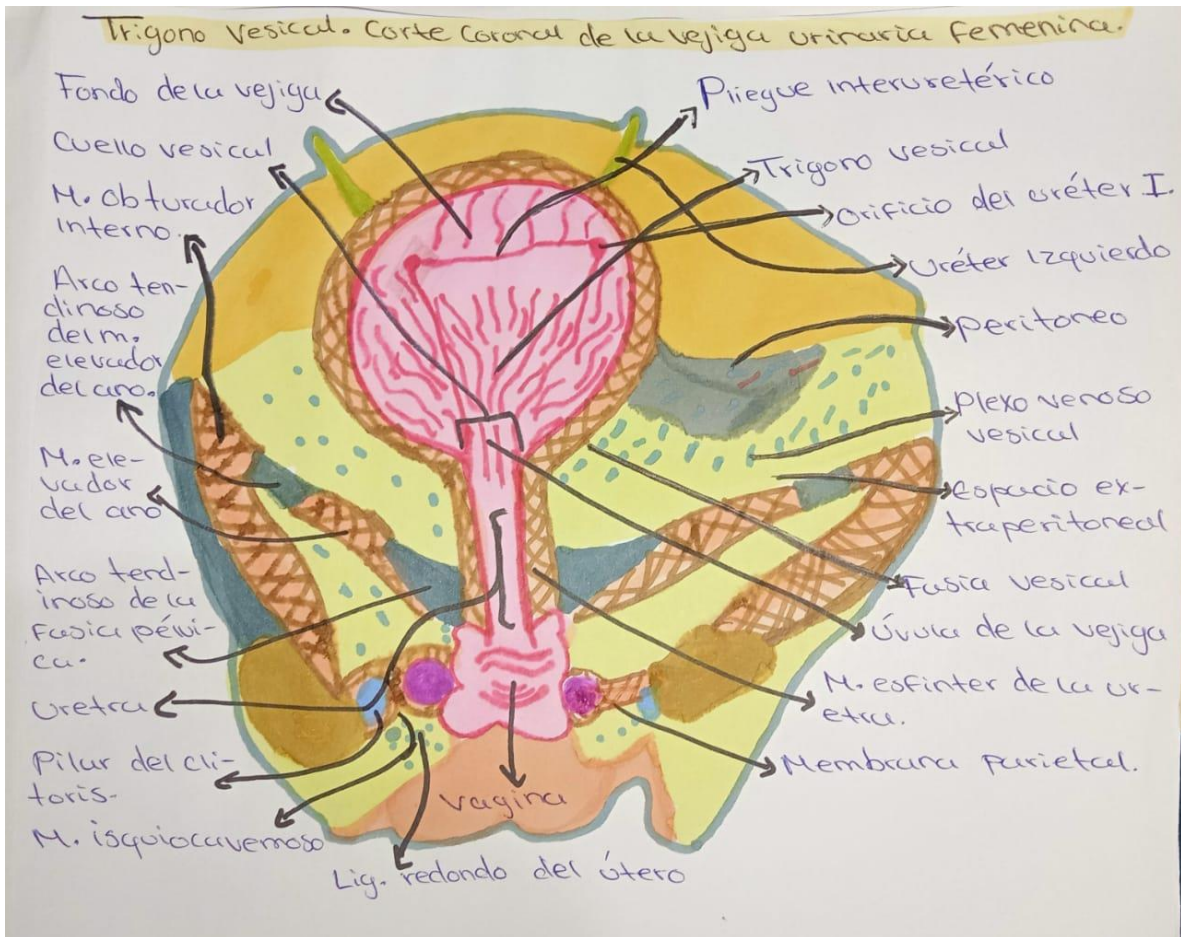 Trigono Vesical. Corte Coronal de la vejiga urinaria femenina.
Fondo de la vejiga
Cuello vesical
M. Obturador
interno.
Arco ten-
dinoso
del m.
elevador
del ano.
M. ele-
vador
del ano
Arco tend-
inoso de la
Fasia pélvi-
ca.
Uretra
Pilar del cli-
toris.
M. isquiocavernoso
Lig. redondo del útero
Vagina
Pliegue interuretérico
Trigono vesical
Orificio del uréter I.
Uréter Izquierdo
Peritoneo
Plexo venoso
vesical
Espacio ex-
traperitoneal
Fasia vesical
Úvula de la vejiga
M. esfinter de la ur-
etra.
Membrana parietal.